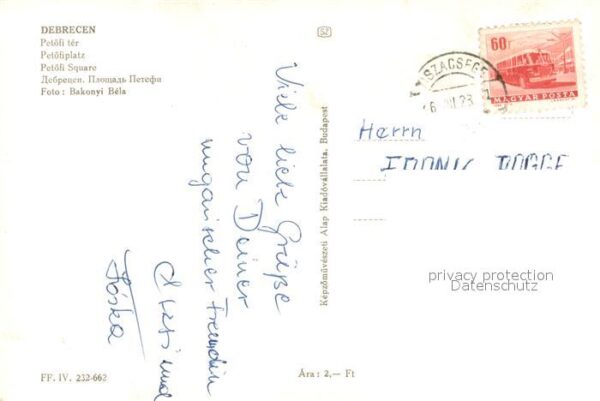 DEBRECEN
Petőfi tér
Petőfiplatz
Petőfi Square
Дебрецен. Площадь Петефи
Foto : Bakonyi Béla
Viele liebe Grüße
von Deiner
ungarischer Freundin
und
Jóska
Képzőművészeti Alap Kiadóvállalata, Budapest
60f
MAGYAR POSTA
Herrn
privacy protection
Datenschutz
FF. IV. 232-662
Ára : 2,— Ft